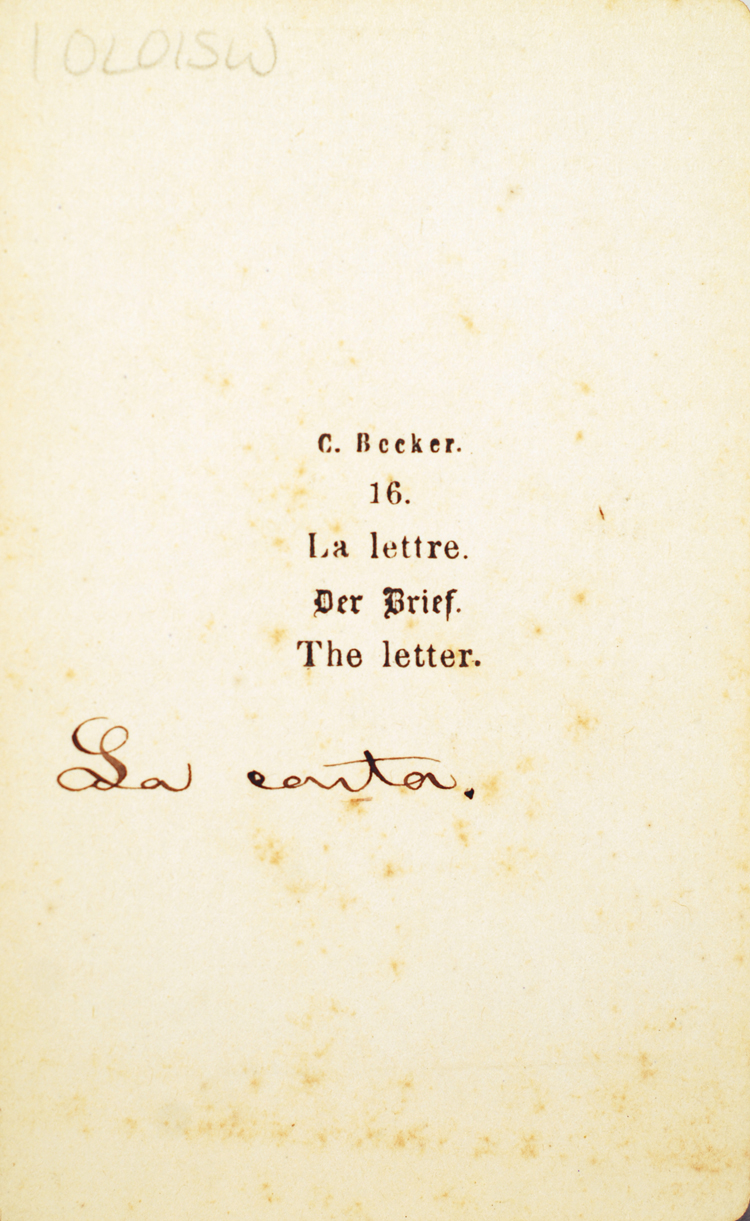 10L01SW
C. Becker.
16.
La lettre.
Der Brief.
The letter.
La carta.